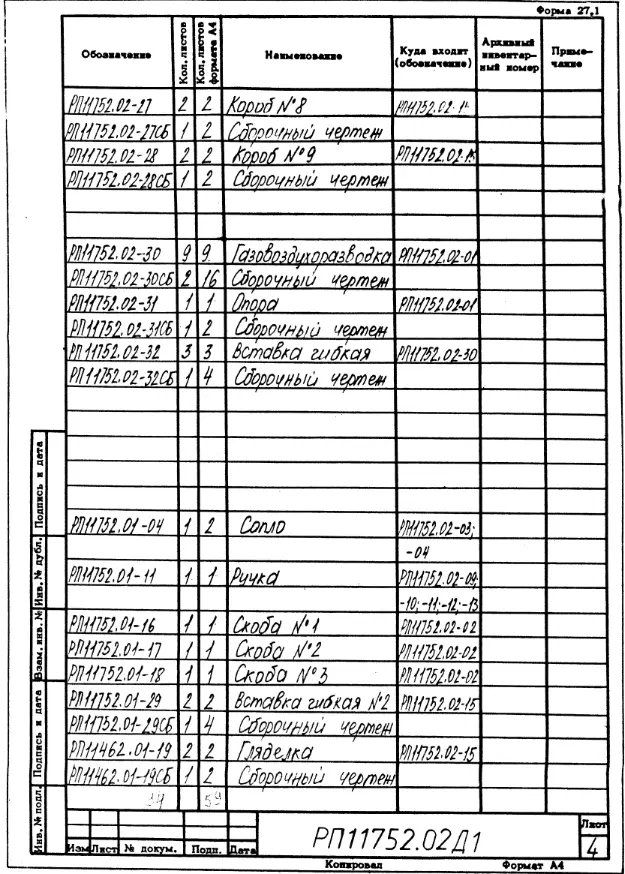 Форма 27.1
Обозначение Кол. листов Кол. листов формата А4 Наименование Куда входит (обозначение) Архивный инвентарный номер Примечание
РП11752.02-27 2 2 Короб №8
РП11752.02-27СБ 1 2 Сборочный чертеж
РП11752.02-28 2 2 Короб №9
РП11752.02-28СБ 1 2 Сборочный чертеж
РП11752.02-30 9 9 Газовоздухоразводка РП11752.02-01
РП11752.02-30СБ 2 16 Сборочный чертеж
РП11752.02-31 1 1 Опора РП11752.02-01
РП11752.02-31СБ 1 2 Сборочный чертеж
РП11752.02-32 3 3 Вставка гибкая РП11752.02-30
РП11752.02-32СБ 1 4 Сборочный чертеж
РП11752.01-04 1 2 Сопло РП11752.02-03;
-04
РП11752.01-11 1 1 Ручка РП11752.02-09;
-10;-11;-12;-13
РП11752.01-16 1 1 Скоба №1 РП11752.02-02
РП11752.01-17 1 1 Скоба №2 РП11752.02-02
РП11752.01-18 1 1 Скоба №3 РП11752.02-02
РП11752.01-29 2 2 Вставка гибкая №2 РП11752.02-15
РП11752.01-29СБ 1 4 Сборочный чертеж
РП11462.01-19 2 2 Гляделка РП11752.02-15
РП11462.01-19СБ 1 2 Сборочный чертеж
34 59
Инв. № подл. Подпись и дата Взам. инв. № Инв. № дубл. Подпись и дата
Изм Лист № докум. Подп. Дата
РП11752.02Д1
Лист
4
Копировал Формат А4